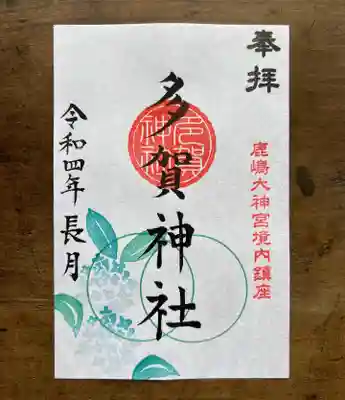 奉拝
鹿嶋大神宮境内鎮座
多賀神社
令和四年 長月